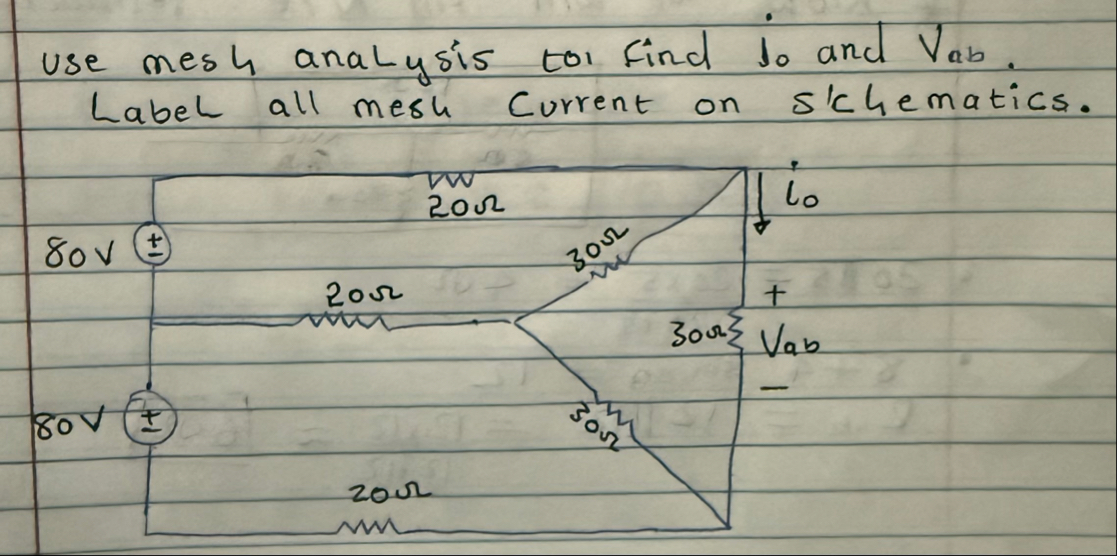 Use mesh analysis to find io and Vab.
Label all mesh Current on schematics.
20Ω
io
80V
30Ω
20Ω
+
30Ω
Vab
-
80V
30Ω
20Ω